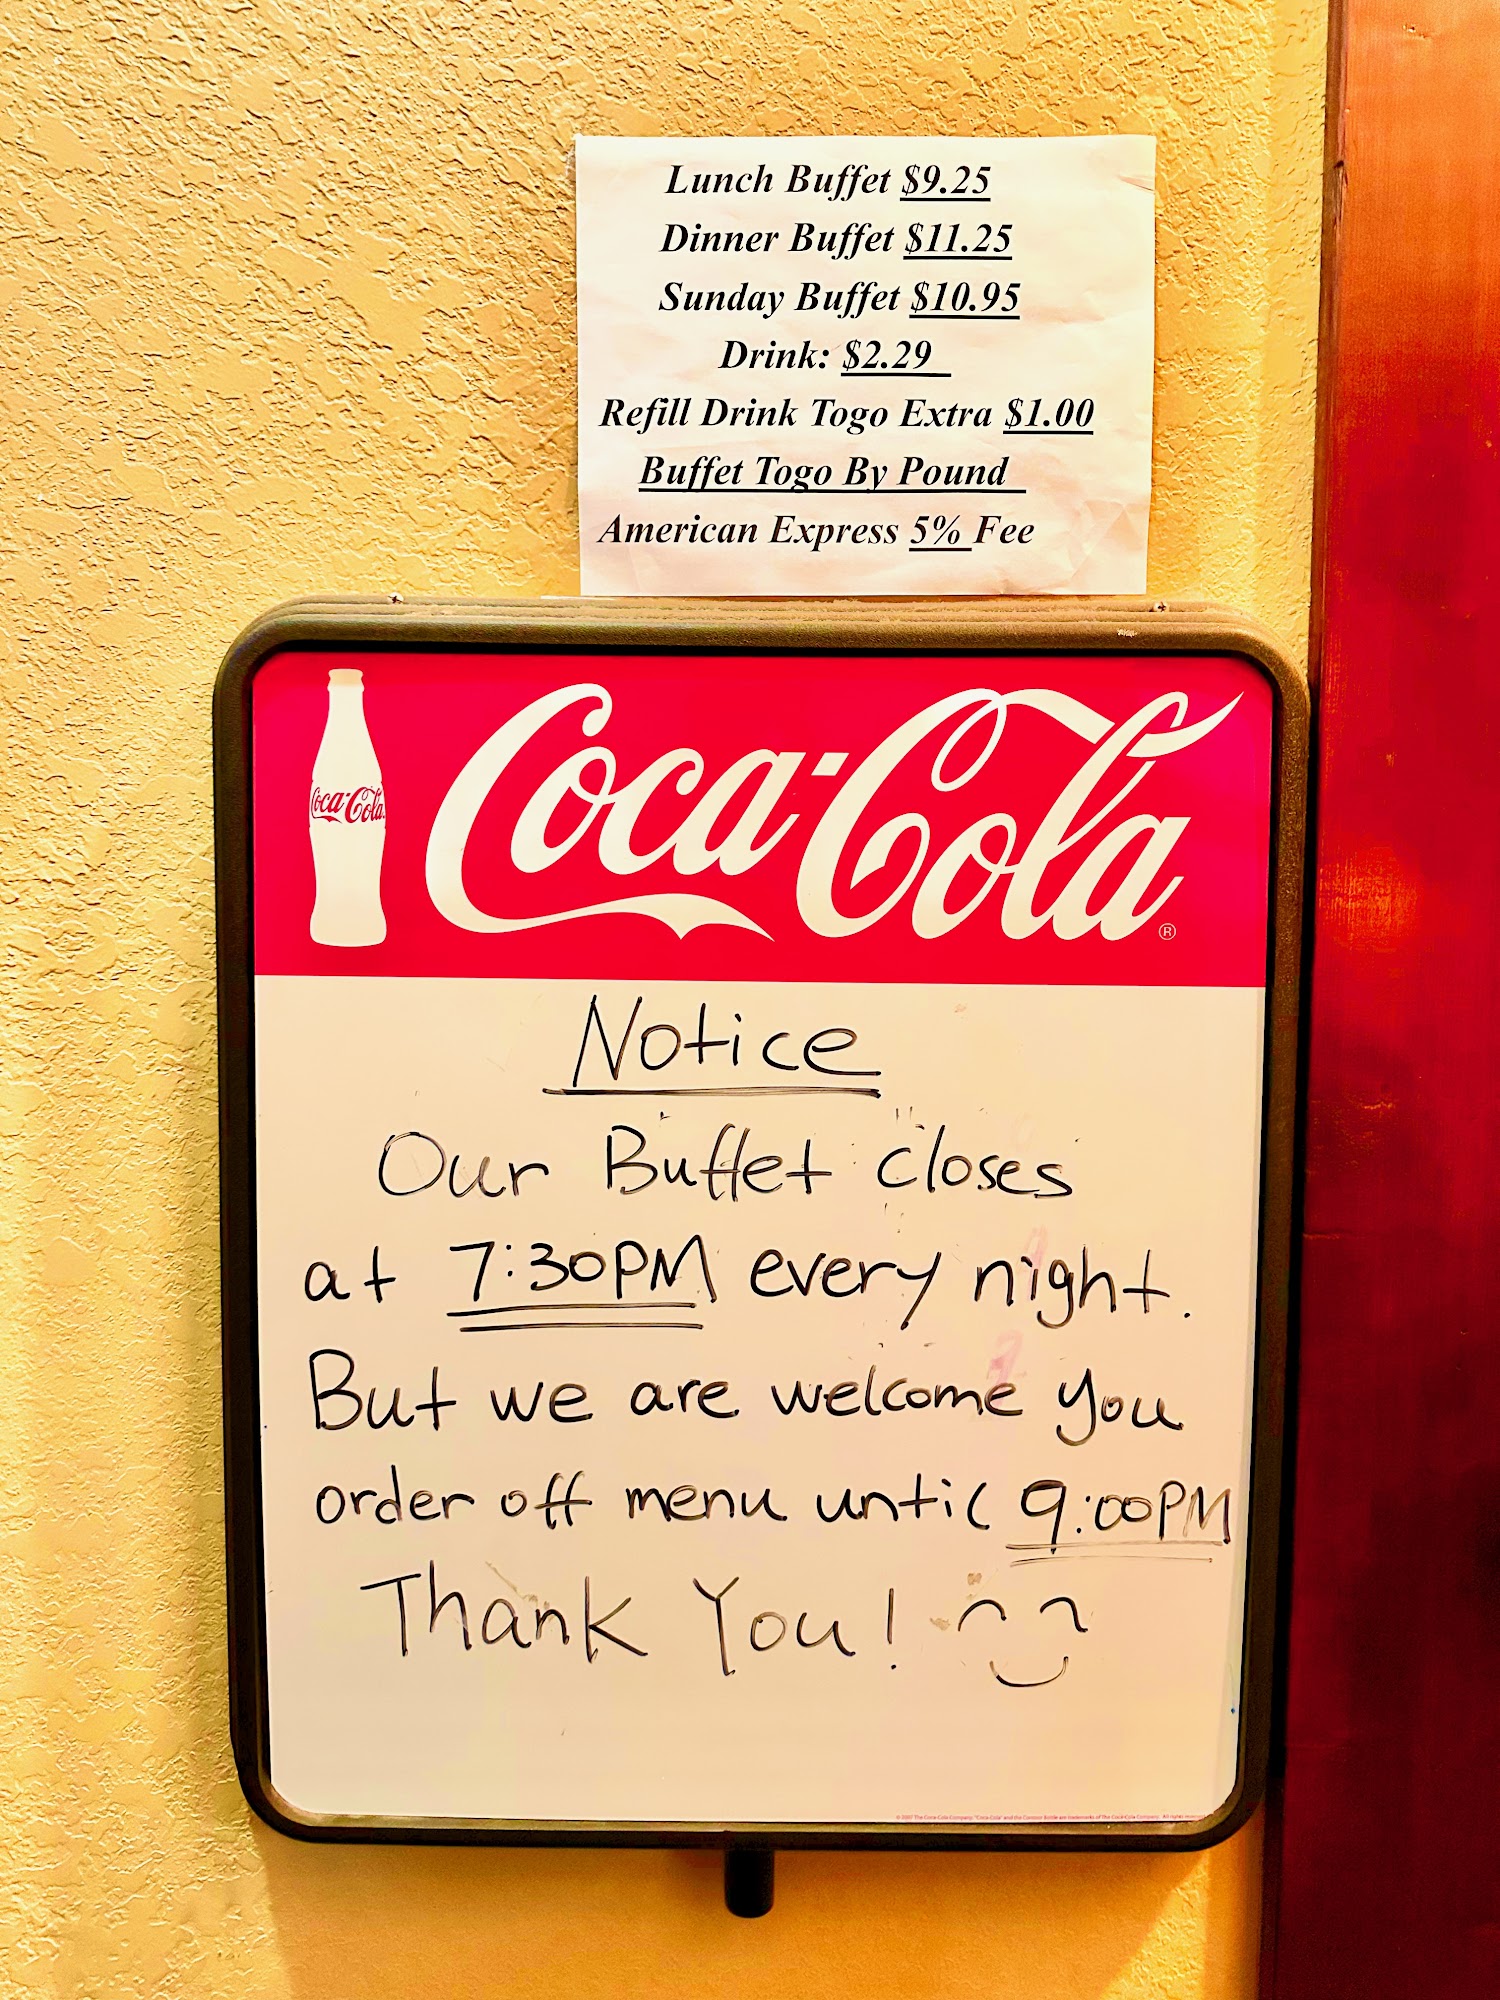 Lunch Buffet $9.25
Dinner Buffet $11.25
Sunday Buffet $10.95
Drink: $2.29
Refill Drink Togo Extra $1.00
Buffet Togo By Pound
American Express 5% Fee
Coca-Cola
Coca-Cola ®
Notice
Our Buffet closes
at 7:30PM every night.
But we are welcome you
order off menu until 9:00PM
Thank You!